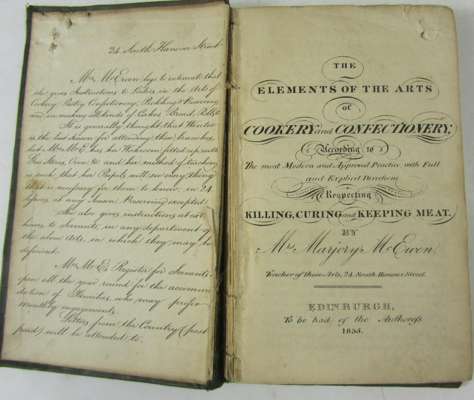 24 South Hanover Street
Mrs. McEwen begs to intimate that
she gives Instructions to Ladies, in the Arts of
Cookery, Pastry, Confectionary, Pickling & Preserving
and in making all kinds of Cakes, Bread, Rolls &c
It is generally thought that Winter
is the best season for attending these branches,
but Mrs. McE. has her Kitchen fitted up with
Gas Stoves, Oven &c and her method of teaching
is such that her Pupils will see every thing
that is necessary for them to know, in 24
lessons, at any season. Preserving excepted
She also gives instructions at all
hours to Servants in any department of
the above Arts, in which they may be
deficient.
Mrs. McE's Register for Servants
open all the year round for the accommo
dation of Families, who may prefer
monthly engagements
Letters from the Country (post
paid) will be attended to.
THE
ELEMENTS OF THE ARTS
of
COOKERY and CONFECTIONERY,
According to
The most Modern and Approved Practice, with Full
and Explicit Directions
Respecting
KILLING, CURING and KEEPING MEAT.
BY
Mrs. Marjory McEwen
Teacher of These Arts, 24, South Hanover Street.
EDINBURGH,
To be had of the Authoress
1835.